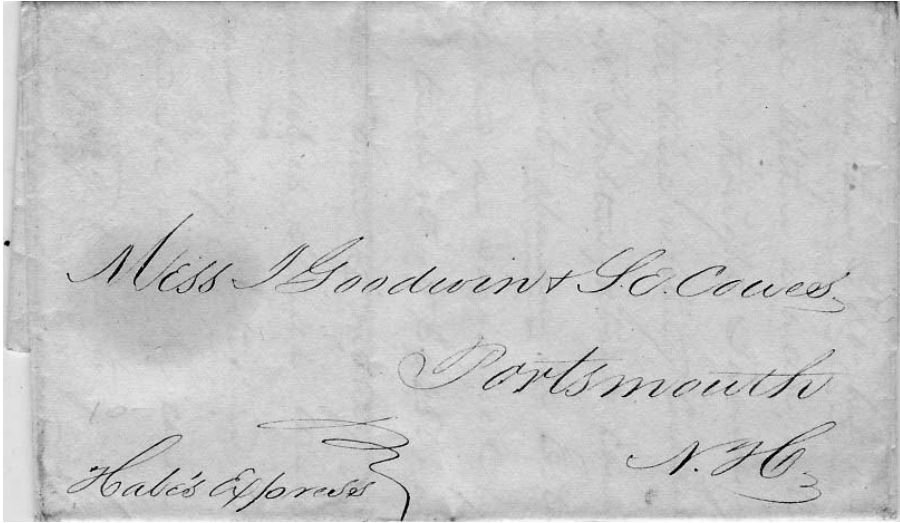 Mess I Goodwin & S.E. Coues
Portsmouth
N.H.
Hale's Express